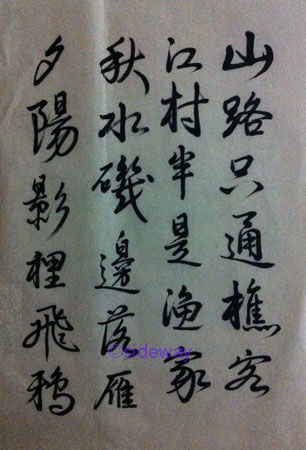 山路只通樵客
江村半是漁家
秋水磯邊落雁
夕陽影裡飛鴉
©sideway